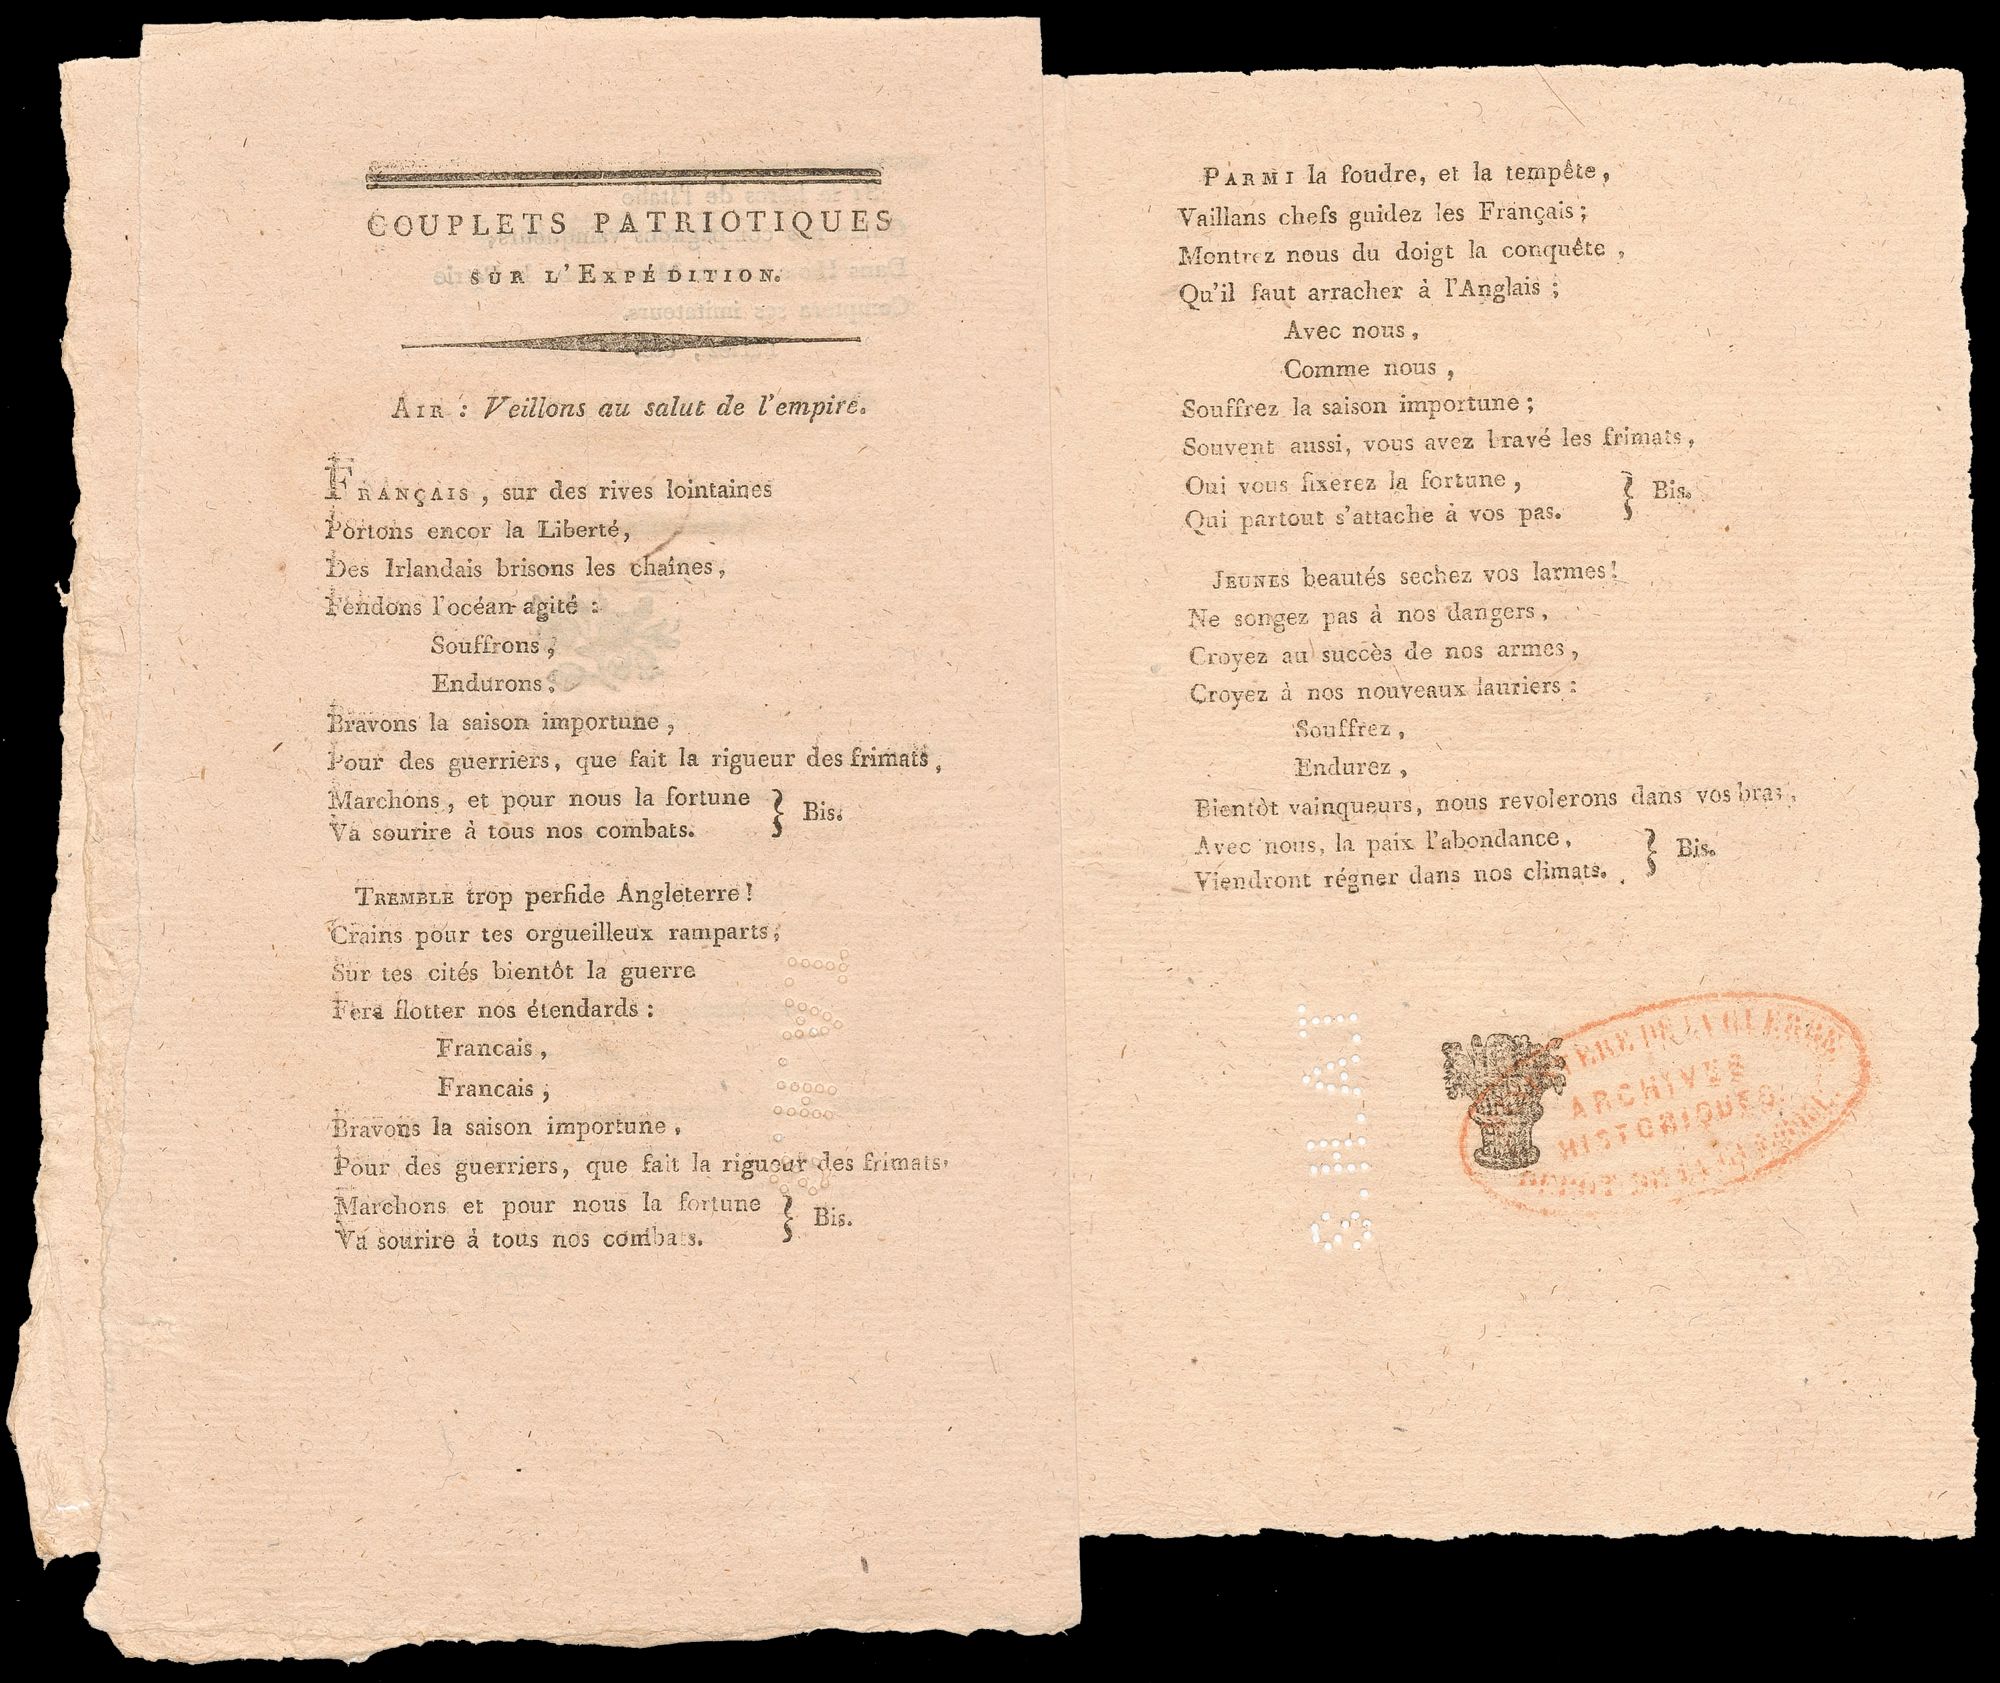 COUPLETS PATRIOTIQUES
SUR L'EXPÉDITION.
AIR : Veillons au salut de l'empire.
FRANÇAIS, sur des rives lointaines
Portons encor la Liberté,
Des Irlandais brisons les chaînes,
Fendons l'océan agité :
Souffrons,
Endurons,
Bravons la saison importune,
Pour des guerriers, que fait la rigueur des frimats,
Marchons, et pour nous la fortune
Va sourire à tous nos combats.
} Bis.
TREMBLE trop perfide Angleterre!
Crains pour tes orgueilleux ramparts,
Sur tes cités bientôt la guerre
Fera flotter nos étendards :
Francais,
Francais,
Bravons la saison importune,
Pour des guerriers, que fait la rigueur des frimats,
Marchons et pour nous la fortune
Va sourire à tous nos combats.
} Bis.
PARMI la foudre, et la tempête,
Vaillans chefs guidez les Français;
Montrez nous du doigt la conquête,
Qu'il faut arracher à l'Anglais;
Avec nous,
Comme nous,
Souffrez la saison importune;
Souvent aussi, vous avez bravé les frimats,
Oui vous fixerez la fortune,
Qui partout s'attache à vos pas.
} Bis.
JEUNES beautés sechez vos larmes!
Ne songez pas à nos dangers,
Croyez au succès de nos armes,
Croyez à nos nouveaux lauriers :
Souffrez,
Endurez,
Bientôt vainqueurs, nous revolerons dans vos bras,
Avec nous, la paix l'abondance,
Viendront régner dans nos climats.
} Bis.
SHAT
DE LA GUERRE
ARCHIVES
HISTORIQUES